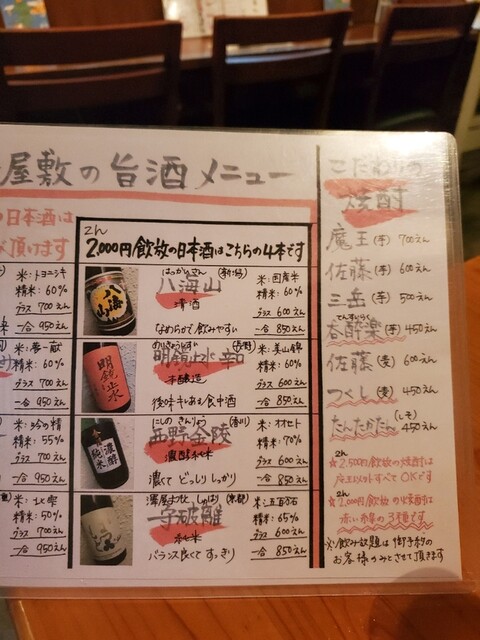 屋敷の旨酒メニュー
の日本酒は
頂けます
2,000円飲放の日本酒はこちらの4本です
精米:60%
グラス 700えん
一合 950えん
精米:60%
グラス 700えん
一合 950えん
精米:55%
グラス 700えん
一合 950えん
精米:50%
グラス 700えん
一合 950えん
はっかいさん
八海山
清酒
なめらかで飲みやすい
米:国産米
精米:60%
グラス 600えん
一合 850えん
明鏡止水 辛口
本醸造
後のキレある食中酒
米:美山錦
精米:60%
グラス 600えん
一合 850えん
にしの きんりょう (香川)
西野金陵
濃醇純米
濃くて どっしり しっかり
米:オオセト
精米:70%
グラス 600えん
一合 850えん
守破離
純米
バランス良くて すっきり
米:五百万石
精米:65%
グラス 600えん
一合 850えん
こだわりの
焼酎
魔王(芋) 700えん
佐藤(芋) 600えん
三岳(芋) 500えん
呑酔楽(芋) 450えん
佐藤(麦) 600えん
つくし(麦) 450えん
たんたかたん(しそ) 450えん
☆2,500円飲放の焼酎は
魔王以外すべてOKです
☆2,000円飲放の焼酎は
赤い線の3種です
※飲み放題は御予約の
お客様のみとさせて頂きます